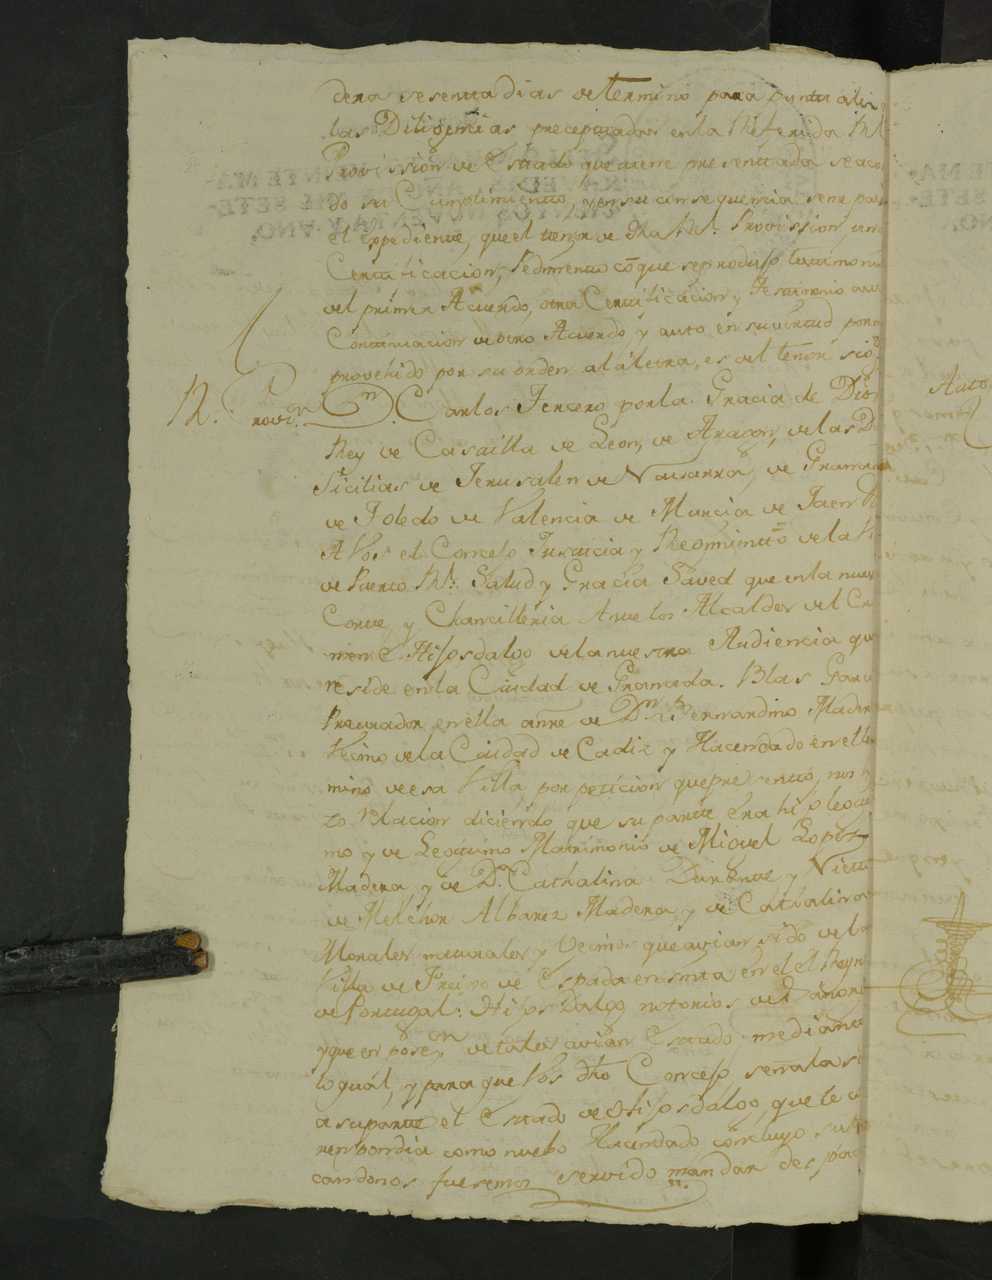 dera sesenta dias de termino para puntuali
las Diligencias preceptuadas en la Referida Rl
Provission de Estado que tiene presentada se aco
do su Cumplimiento, y en su consequencia sene pas
el expediente, que el tenor de dha Rl. Provission, un
Certificacion, Pedimento cõ que se produjo, testimonio
del primer Acuerdo, otra Certificacion y Testimonio a su
Continuacion de otro Acuerdo y auto en su virtud por m
provehido por su orden a la letra, es del tenor sigte
12. Provin. Dn. Carlos Tercero por la Gracia de Dios
Rey de Castilla de Leon, de Aragon, de las D
Sicilias de Jerusalen de Navarra, de Granada
de Toledo de Valencia de Murcia de Jaen &
A Vos el Concejo Justicia y Regimiento de la V
de Puerto Rl. Salud y Gracia Saved que en la nues
Corte y Chancilleria Ante los Alcaldes del Cri
men e Hijosdalgo de la nuestra Audiencia que
reside en la Ciudad de Granada. Blas Garci
Procurador en ella anne de Dn. Bernardino Madera
Vecino de la Ciudad de Cadiz y Hacendado en el ter
mino de esa Villa, por peticion que presentó, nos
zo Relacion diciendo que su parte era hijo legiti
mo y de Legitimo Matrimonio de Miguel Lopez
Madera, y de Da. Cathalina y Nieto
de Melchor Albarez Madera, y de Cathalina
Morales naturales y Vecinos que avian sido de la
Villa de Freixo de Espadaensinta en el el Reyno
de Portugal: Hijosdalgo notorios de Sangre
y que en posen. de tales avian Estado mediante
lo qual, y para que Vos dho Concejo señalasei
a su parte el Estado de Hijosdalgo, que le co
rrespondia como nuebo Hacendado concluyo supli
candonos fuesemos servido mandar despac
Auto